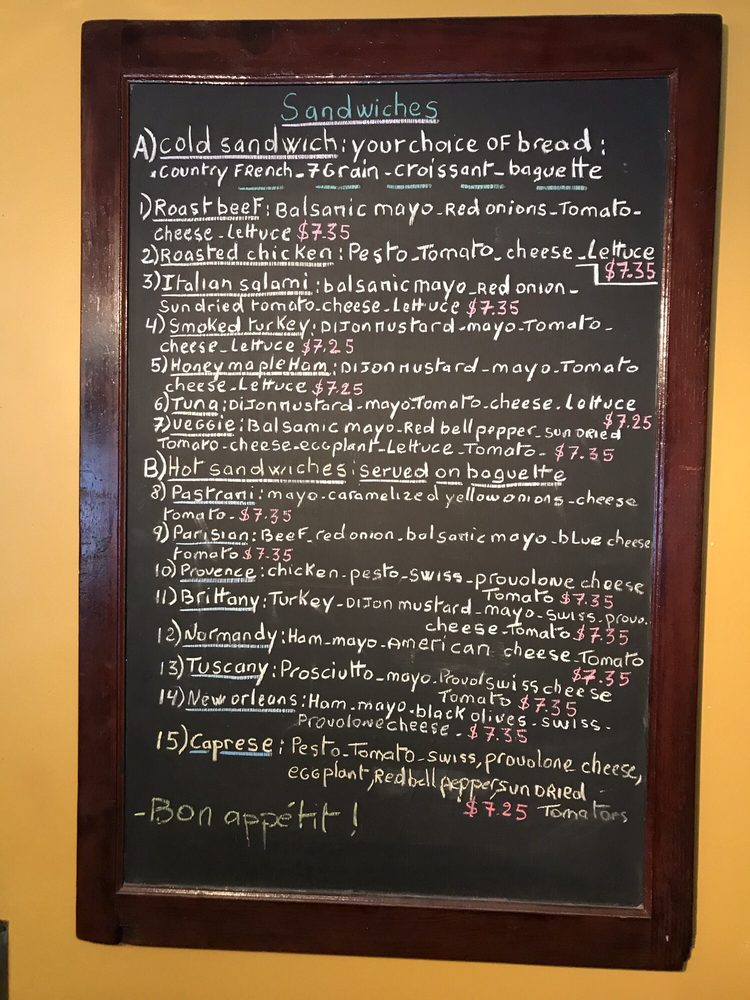 Sandwiches
A) cold sandwich: your choice of bread:
. country French - 7 Grain - croissant - baguette
1) Roast beef: Balsamic mayo - Red onions - Tomato -
cheese - Lettuce $7.35
2) Roasted chicken: Pesto - Tomato - cheese - Lettuce
$7.35
3) Italian salami: balsamic mayo - Red onion -
Sun dried tomato - cheese - Lettuce $7.35
4) Smoked turkey: Dijon Mustard - mayo - Tomato -
cheese - Lettuce $7.25
5) Honey maple Ham: Dijon Mustard - mayo - Tomato
cheese - Lettuce $7.25
6) Tuna: Dijon Mustard - mayo - Tomato - cheese - Lettuce
$7.25
7) Veggie: Balsamic mayo - Red bell pepper - sun DRIED
Tomato - cheese - eggplant - Lettuce - Tomato - $7.35
B) Hot sandwiches: served on baguette
8) Pastrami: mayo - caramelized yellow onions - cheese
tomato - $7.35
9) Parisian: Beef - red onion - balsamic mayo - blue cheese
tomato $7.35
10) Provence: chicken - pesto - swiss - provolone cheese
Tomato $7.35
11) Brittany: Turkey - Dijon mustard - mayo - swiss - provo.
cheese - Tomato $7.35
12) Normandy: Ham - mayo - American cheese - Tomato
$7.35
13) Tuscany: Prosciutto - mayo - Provol swiss cheese
Tomato $7.35
14) New orleans: Ham - mayo - black olives - swiss -
Provolone cheese - $7.35
15) Caprese: Pesto - Tomato - swiss, provolone cheese,
eggplant, Red bell pepper, sun DRIED
$7.25 Tomatoes
- Bon appétit!